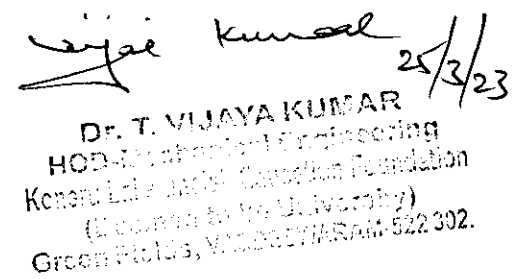 Vijai Kumar
25/3/23
Dr. T. VIJAYA KUMAR
HOD-Mechanical Engineering
Education Foundation
(Deemed to be University)
Green Fields, 522 302.